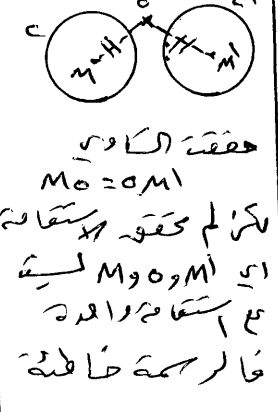 C O C'
M M'
حققت التساوي
MO = OM'
لكن لم تحقق الاستقامة
اي M و O و M' ليست
ع استقامة واحدة
فالرسمة خاطئة